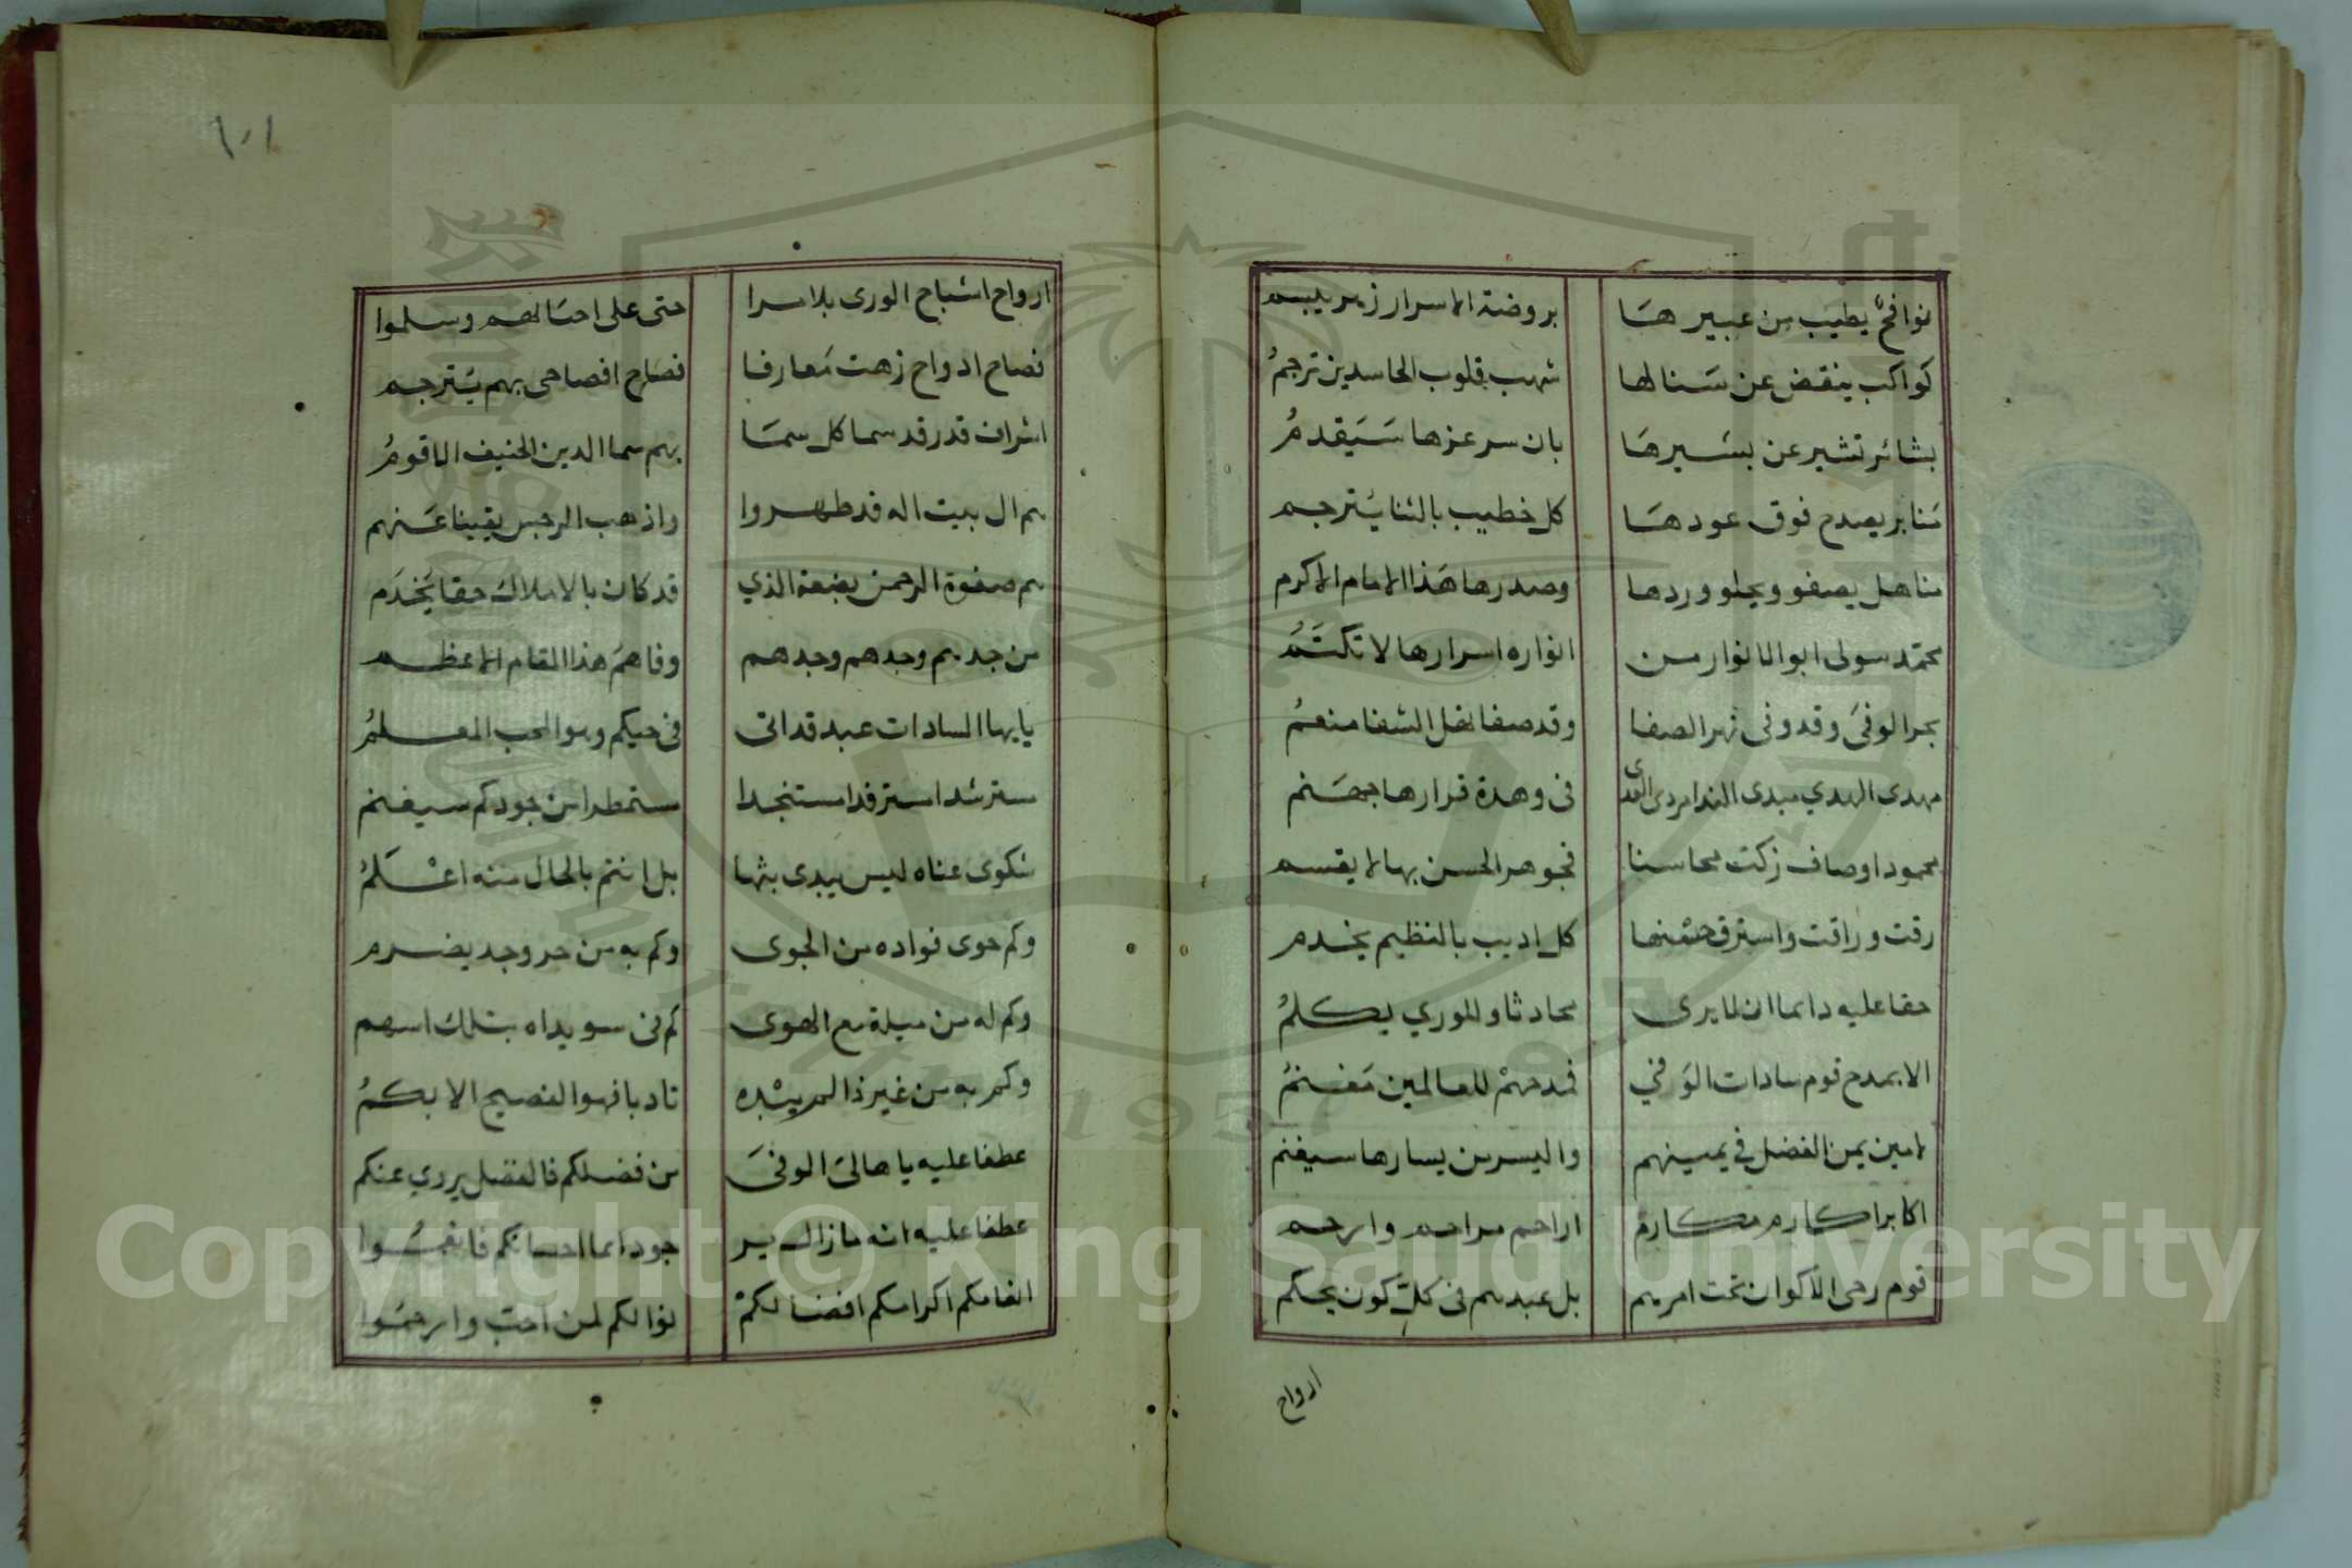 نوافح يطيب من عبيرها بروضة الاسرار زهر يبسم
كواكب ينقض عن سنالها شهب قلوب الحاسدين ترجم
بشائر تشير عن بشيرها بان سر عزها سيقدم
منابر يصدح فوق عودها كل خطيب بالثنا يترجم
مناهل يصفو ويحلو وردها وصدرها هذا الامام الاكرم
محمد مولى ابو الانوار من انواره اسرارها لا تكتم
بحر الوفى وقد وفى نهر الصفا وقد صفا اهل الشفا منعم
مهدى الهدي مبدى الندا مردى العدى فى وهدة قرارها جهنم
محمود اوصاف زكت محاسنا فجوهر الحسن بها لا يقسم
رقت وراقت واسترق حسنها كل اديب بالنظيم يخدم
حقا عليه دائما ان لا يرى محادثا وللوري يكلم
الا بمدح قوم سادات الوفي فمدحهم للعالمين مغنم
لامين يمن الفضل في يمينهم واليسر من يسارها سيغنم
اكابر اكارم مكارم اراحم مراحم وارحم
قوم رحى الاكوان تحت امرهم بل عبدهم فى كل كون يحكم
ارواح
١٠١
ارواح اشباح الورى بلا مرا حتى على احسالهم وسلموا
فصاح ادواح زهت معارفا فصاح افصاحى بهم يترجم
اشراف قدر قد سما كل سما بهم سما الدين الحنيف الاقوم
هم ال بيت اله قد طهروا واذهب الرجس يقينا عنهم
هم صفوة الرحمن بضعة الذي قد كان بالاملاك حقا يخدم
من جدهم وجدهم وجدهم وفاهم هذا المقام الاعظم
يا يها السادات عبد قد اتى فى حيكم وهو المحب المعلم
مسترشدا مسترفدا مستنجدا مستمطرا من جودكم سيغنم
شكوى عناه ليس يبدى بثها بل انتم بالحال منه اعلم
وكم حوى فواده من الجوى وكم به من حر وجد يضرم
وكم له من ميلة مع الهوى كم فى سويداه بتلك اسهم
وكم به من غير ذا لم يبده تادبا فهو الفصيح الابكم
عطفا عليه يا هالى الوفى من فضلكم فالفضل يروي عنكم
عطفا عليه انه ما زال ير جو دائما احسانكم فانعموا
انعامكم اكرامكم افضالكم نوالكم لمن احب وارحموا
Copyright © King Saud University
1957